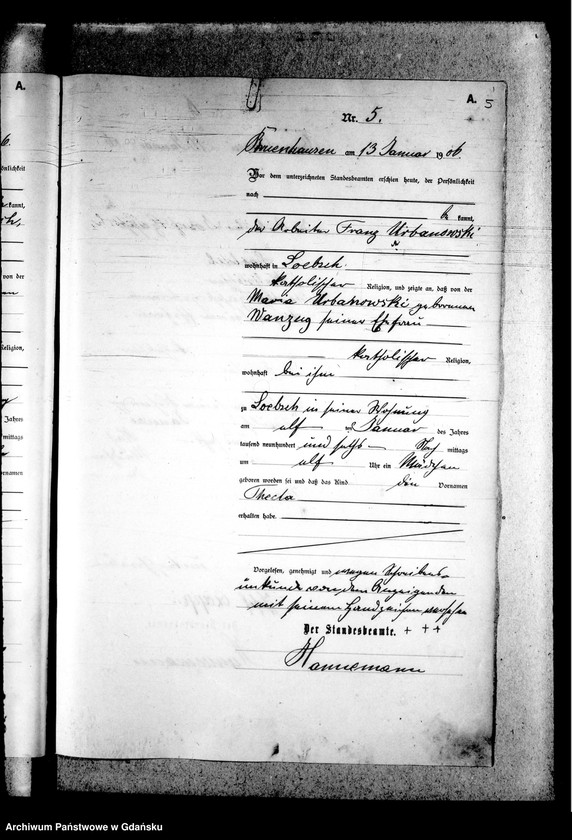 A.
A. 5
Nr. 5.
am 13 Januar 1906.
Vor dem unterzeichneten Standesbeamten erschien heute, der Persönlichkeit
nach
be kannt,
der Arbeiter Franz Urbanowski
wohnhaft in Loebsch
katholischer Religion, und zeigte an, daß von der
Maria Urbanowski geborenen
Wanzug seiner Ehefrau
katholischer Religion,
wohnhaft bei ihm
zu Loebsch in seiner Wohnung
am elf ten Januar des Jahres
tausend neunhundert und sechs Nach mittags
um elf Uhr ein Mädchen
geboren worden sei und daß das Kind den Vornamen
Thecla
erhalten habe.
Vorgelesen, genehmigt und wegen Schreibens-
unkunde von dem Anzeigenden
mit seinem Handzeichen versehen
Der Standesbeamte. + + +
Hannemann
6.
önlichkeit
kannt,
von der
Religion,
Jahres
mittags
ornamen
Archiwum Państwowe w Gdańsku